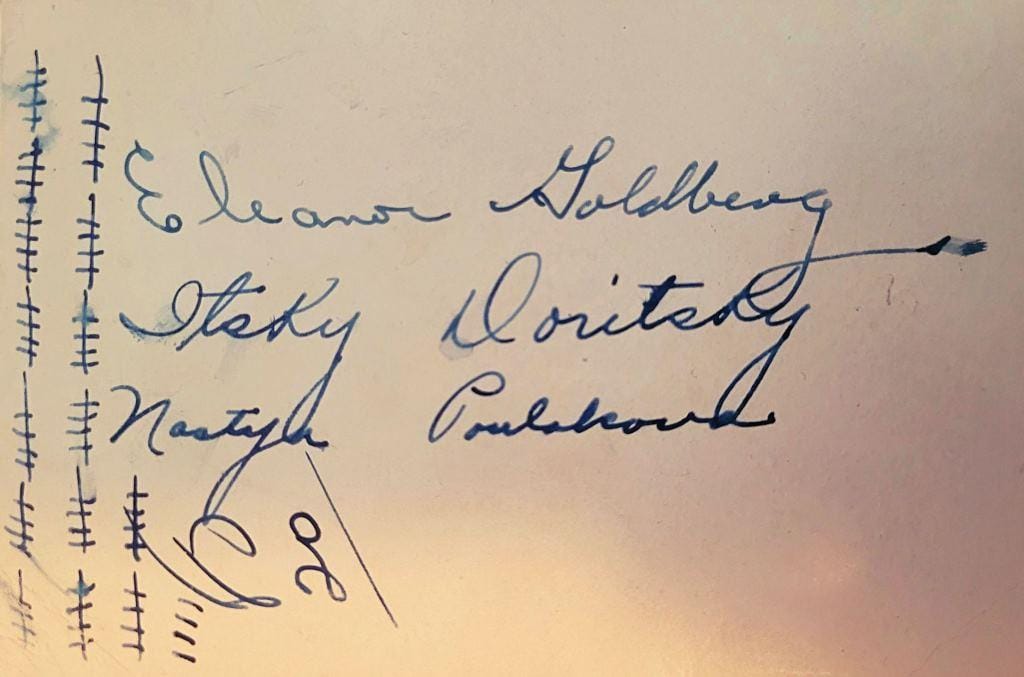 Eleanor Goldberg
Itsky Doritsky
Nastya Poulakova